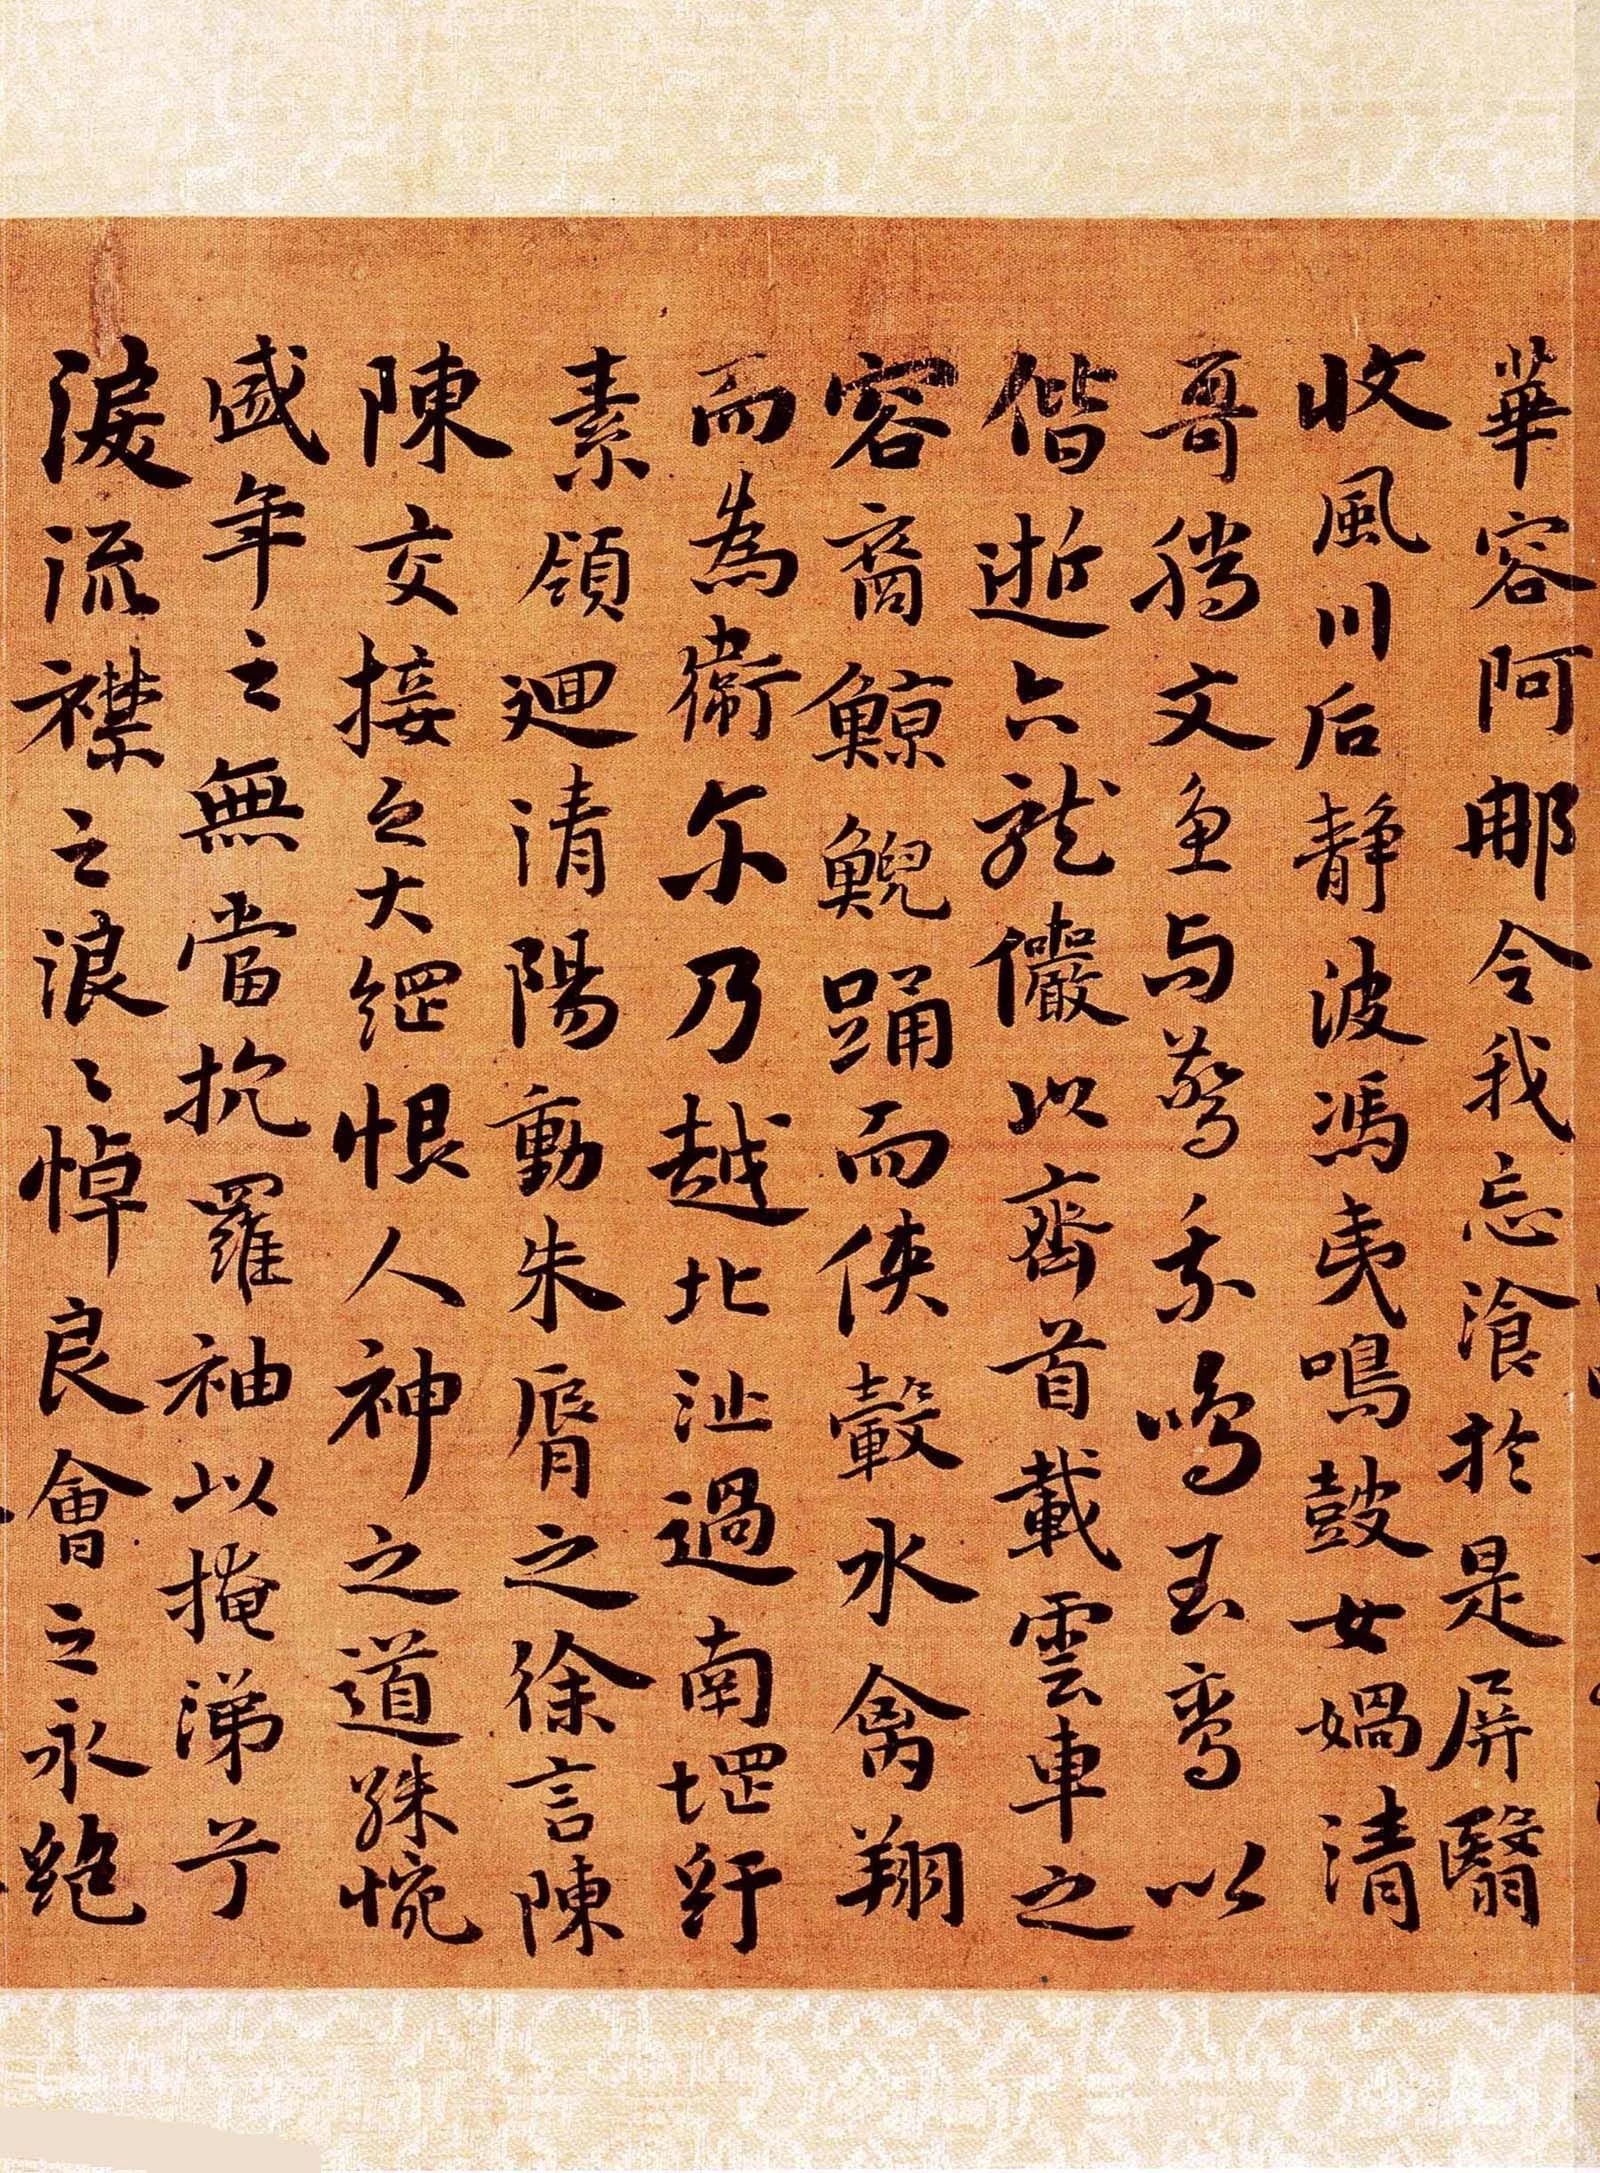 華容阿那令我忘飡於是屏翳
收風川后靜波馮夷鳴鼓女媧清
哥騰文魚以驚乘鳴玉鸞以
偕逝六龍儼以齊首載雲車之
容裔鯨鯢踊而俠轂水禽翔
而為衛尔乃越北沚過南堽紆
素領廻清陽動朱脣之徐言陳
陳交接之大綱恨人神之道殊惋
盛年之無當抗羅袖以掩涕兮
淚流襟之浪〻悼良會之永絕